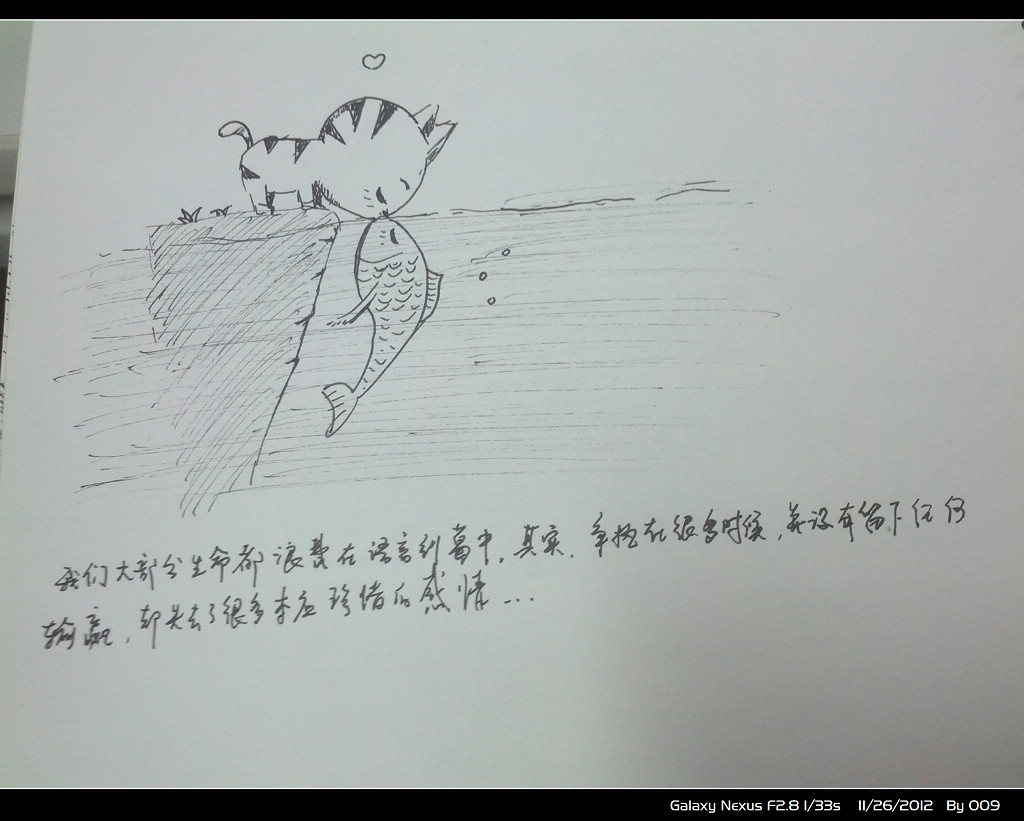 我们大部分生命都浪费在语言到篱中,其实,争执在很多时候,并没有留下任何
输赢,却失去了很多本应珍惜的感情...
Galaxy Nexus F2.8 1/33s 11/26/2012 By 009